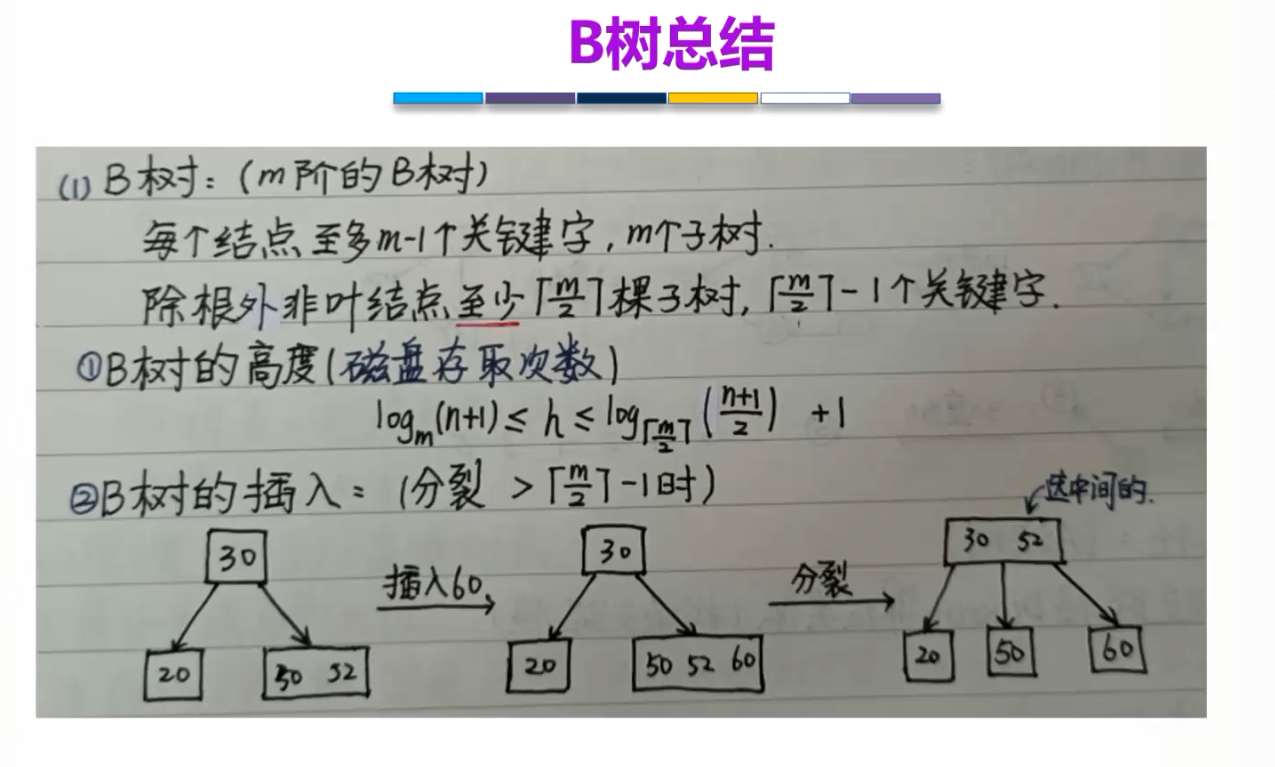 B树总结
(1) B树：(m阶的B树)
每个结点至多m-1个关键字，m个子树.
除根外非叶结点至少⌈m/2⌉棵子树，⌈m/2⌉-1个关键字.
①B树的高度(磁盘存取次数)
logₘ(n+1) ≤ h ≤ log⌈m/2⌉((n+1)/2) +1
②B树的插入：(分裂 > ⌈m/2⌉-1时)
选中间的.
30
插入60
30
分裂
30 52
20
50 52
20
50 52 60
20
50
60